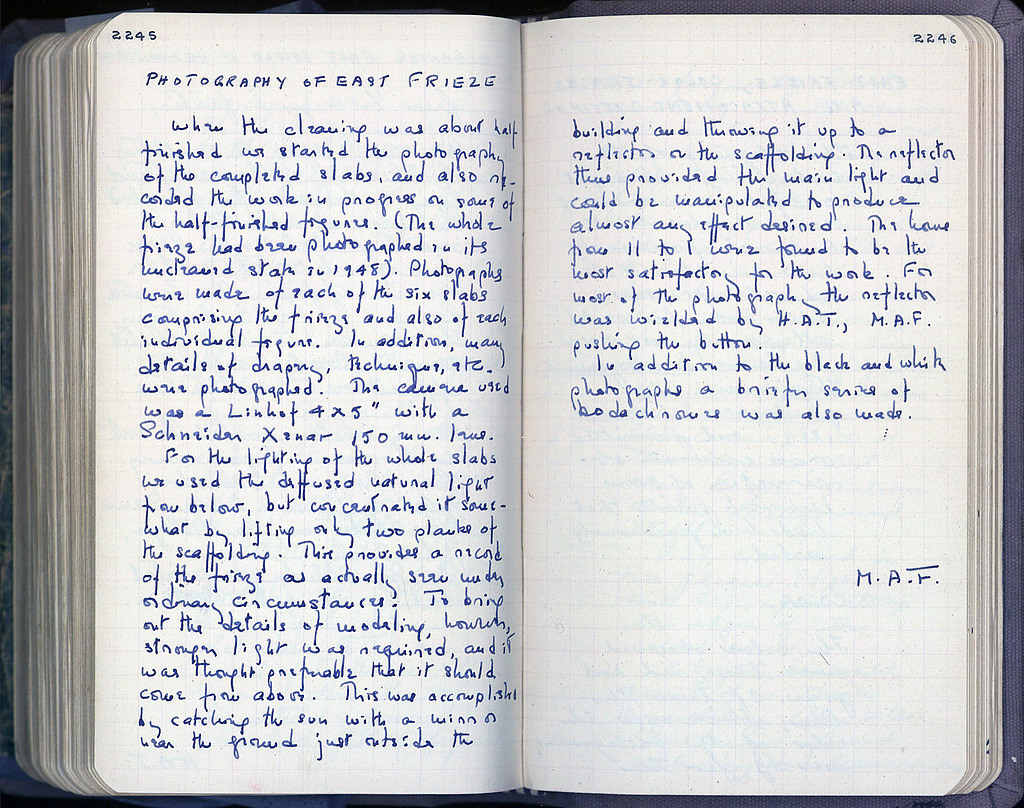 2245
PHOTOGRAPHY OF EAST FRIEZE
When the cleaning was about half
finished we started the photography
of the completed slabs, and also re-
corded the work in progress on some of
the half-finished figures. (The whole
frieze had been photographed in its
uncleaned state in 1948). Photographs
were made of each of the six slabs
comprising the frieze and also of each
individual figure. In addition, many
details of drapery, technique, etc.
were photographed. The camera used
was a Linhof 4x5" with a
Schneider Xenar 150 mm. lens.
For the lighting of the whole slabs
we used the diffused natural light
from below, but concentrated it some-
what by lifting only two planks of
the scaffolding. This provides a record
of the frieze as actually seen under
ordinary circumstances. To bring
out the details of modeling, however,
stronger light was required, and it
was thought preferable that it should
come from above. This was accomplished
by catching the sun with a mirror
near the ground just outside the
2246
building and throwing it up to a
reflector on the scaffolding. The reflector
thus provided the main light and
could be manipulated to produce
almost any effect desired. The hours
from 11 to 1 were found to be the
most satisfactory for the work. For
most of the photography the reflector
was wielded by H.A.T., M.A.F.
pushing the button.
In addition to the black and white
photographs a briefer series of
Kodachromes was also made.
M.A.F.